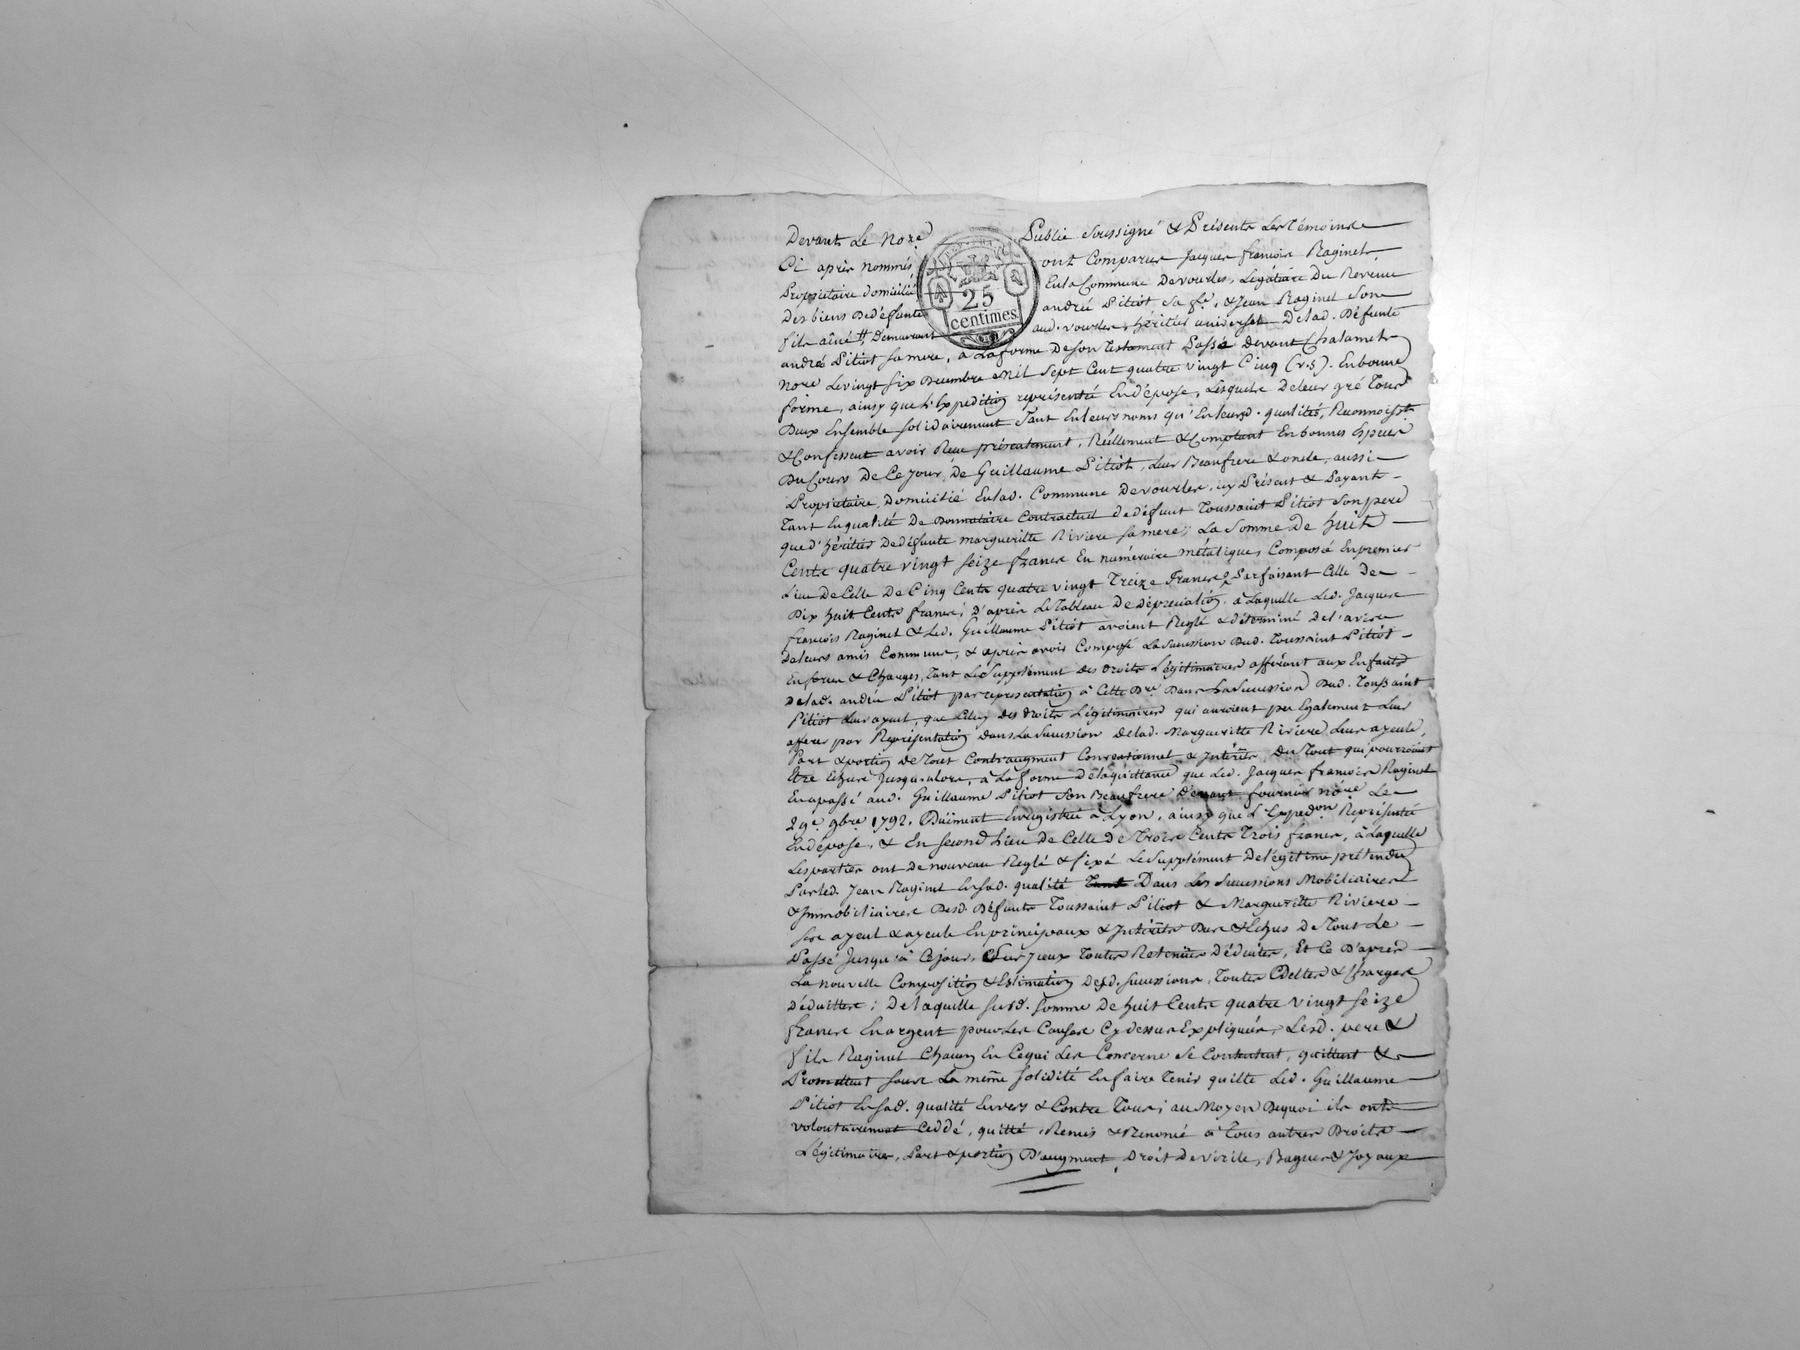 Devant Le Nore Public soussigné & Présents Les Témoins
Ci après nommés, ont Comparus Jacques françois Raginet,
Propriétaire domicilié En la Commune De vourles, Légataire Du Revenu
Des biens De défunte andrée Pitiot sa fe, & Jean Raginet Son
fils aîné, Demeurant aud. vourles, héritier universel De lad. Défunte
andrée Pitiot sa mere, à La forme De son Testament Passé devant Chalamet
Nore Le vingt six Decembre Mil Sept Cent quatre vingt Cinq (v.s). En bonne
forme, ainsy que L'Expedition représentée En dépose, Lesquels De leur gré Tous
Deux Ensemble solidairement Tant En leurs noms qu'En leursd. qualités, Reconnoissent
& Confessent avoir Reçu présentement, Réellement & Comptant En bonnes Espèces
Du Cours De Ce jour, De Guillaume Pitiot, Leur Beaufrere & oncle, aussi
Propriétaire, Domicilié En lad. Commune De vourles, icy Présent & Payant
Tant En qualité De Donnataire Contractuel de défunt Toussaint Pitiot Son pere
que d'héritier De défunte marguerite Riviere sa mere; La Somme De huit
Cents quatre vingt seize francs En numéraire métalique, Composée En premier
Lieu De Celle De Cinq Cents quatre vingt Treize Francs Parfaisant Celle De
Dix huit Cents francs; D'après Le Tableau De dépréciation, à Laquelle Led. Jacques
françois Raginet & Led. Guillaume Pitiot avoient Reglé & déterminé De l'avis
De leurs amis Communs, & après avoir Composé La succession Dud. Toussaint Pitiot
En forces & Charges, Tant Le Supplément des droits Légitimaires afférant aux Enfants
De lad. andrée Pitiot par représentation à Cette Dre Dans La Succession Dud. Toussaint
Pitiot Leur ayeul, que Celuy des droits Légitimaires qui auroient pu Egalement Leur
afferer par Représentation dans La Succession De lad. Marguerite Riviere Leur ayeule,
Part & portion De Tout Contraugment Conventionnel & Intérêts Du Tout qui pourroient
Etre Echus Jusqu'alors, à La forme De la quittance que Led. Jacques françois Raginet
En a passé aud. Guillaume Pitiot Son Beaufrere Devant fournier nore Le
29e. 9bre 1792. Duëment Enregistrée à Lyon, ainsy que L'Expedon Représentée
En dépose, & En second Lieu De Celle de Trois Cents Trois francs, à Laquelle
Les parties ont De nouveau Reglé & fixé Le Supplément De légitime prétendu
Par led. Jean Raginet En sad. qualité Dans Les Successions Mobiliaires
& Immobiliaires Desd. Défunts Toussaint Pitiot & Marguerite Riviere
ses ayeul & ayeule En principaux & Intérêts Dus & Echus De Tout Le
Passé Jusqu'à Ce jour, Toutes Retenües Déduites, Et Ce D'après
La nouvelle Composition & Estimation Desd. successions, Toutes Dettes & Charges
Déduittes; De laquelle susd. somme De huit Cents quatre vingt seize
francs En argent pour Les Causes Cy dessus Expliquées, Lesd. pere &
fils Raginet Chacun En Ce qui Les Concerne Se Contentent, quittent &
Promettent sous La même solidité En faire Tenir quitte Led. Guillaume
Pitiot En sad. qualité Envers & Contre Tous; au Moyen Dequoi ils ont
volontairement Ceddé, quitté, Remis & Renoncé à Tous autres Droits
Légitimaires, Part & portion D'augment, Droit De virile, Bagues & Joyaux
25
centimes